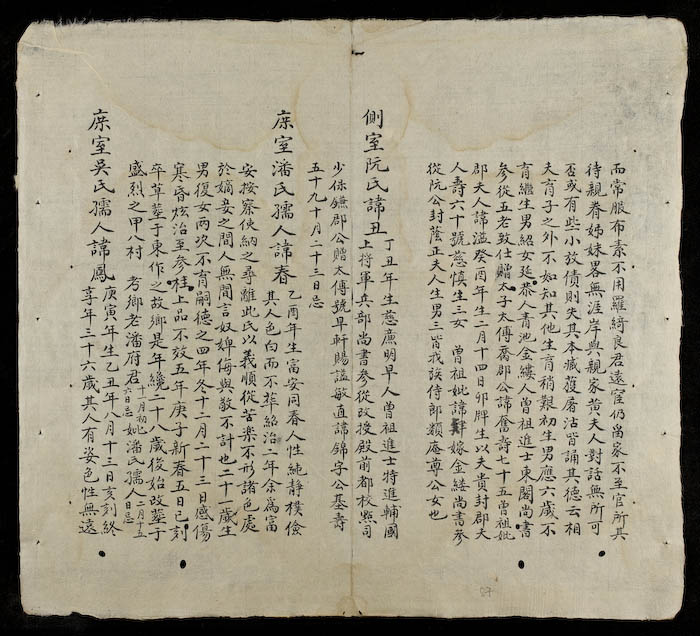 而常服布素不用羅綺良君遠宦仍畱家不至官所其
待親眷姊妹畧無涯岸與親家黄夫人對話無所可
否或有些小放債則失其本臧獲屠沽皆誦其德云相
夫育子之外不如知其他生育稍艱初生男應六歲不
育繼生男紹女延恭人青池金縷人曾祖進士東閣尚書
參從五老致仕贈太子太傅喬郡公諱奮壽七十五曾祖妣
郡夫人諱溢癸酉年生二月十四日卯牌生以夫貴封郡夫
人壽六十號慈慎生三女 曾祖妣諱嫁金縷尚書參
從阮公封蔭正夫人生男三皆我誒侍郎類庵尊公女也
側室阮氏諱丑 丁丑年生慈廉明早人曾祖進士特進輔國
上將軍兵部尚書參從改授殿前都校㸃司
少保鐮郡公贈太傅號早軒賜諡敏直諱錦字公基壽
五十九十月二十三日忌
庶室潘氏孺人諱春 乙酉年生富安同春人性純靜樸儉
其人色白而不葶紹治二年余爲富
安按察使納之尋離此氏以義順從苦樂不形諸色處
於嫡妾之間人無間言奴婢侮與敬不計也二十一歲生
男復女兩次不育嗣德之四年冬十二月二十三日感傷
寒昏炫治至參桂上品不效五年庚子新春五日巳刻
卒草塟于東作之故鄉是年纔二十八歲後始改塟于
盛烈之甲八村 考鄉老潘府君十一月初六日忌妣潘氏孺人二月十五日忌
庶室吳氏孺人諱鳳 庚寅年生乙丑年八月十三日亥刻終
享年三十六歲其人有姿色性無遠
87